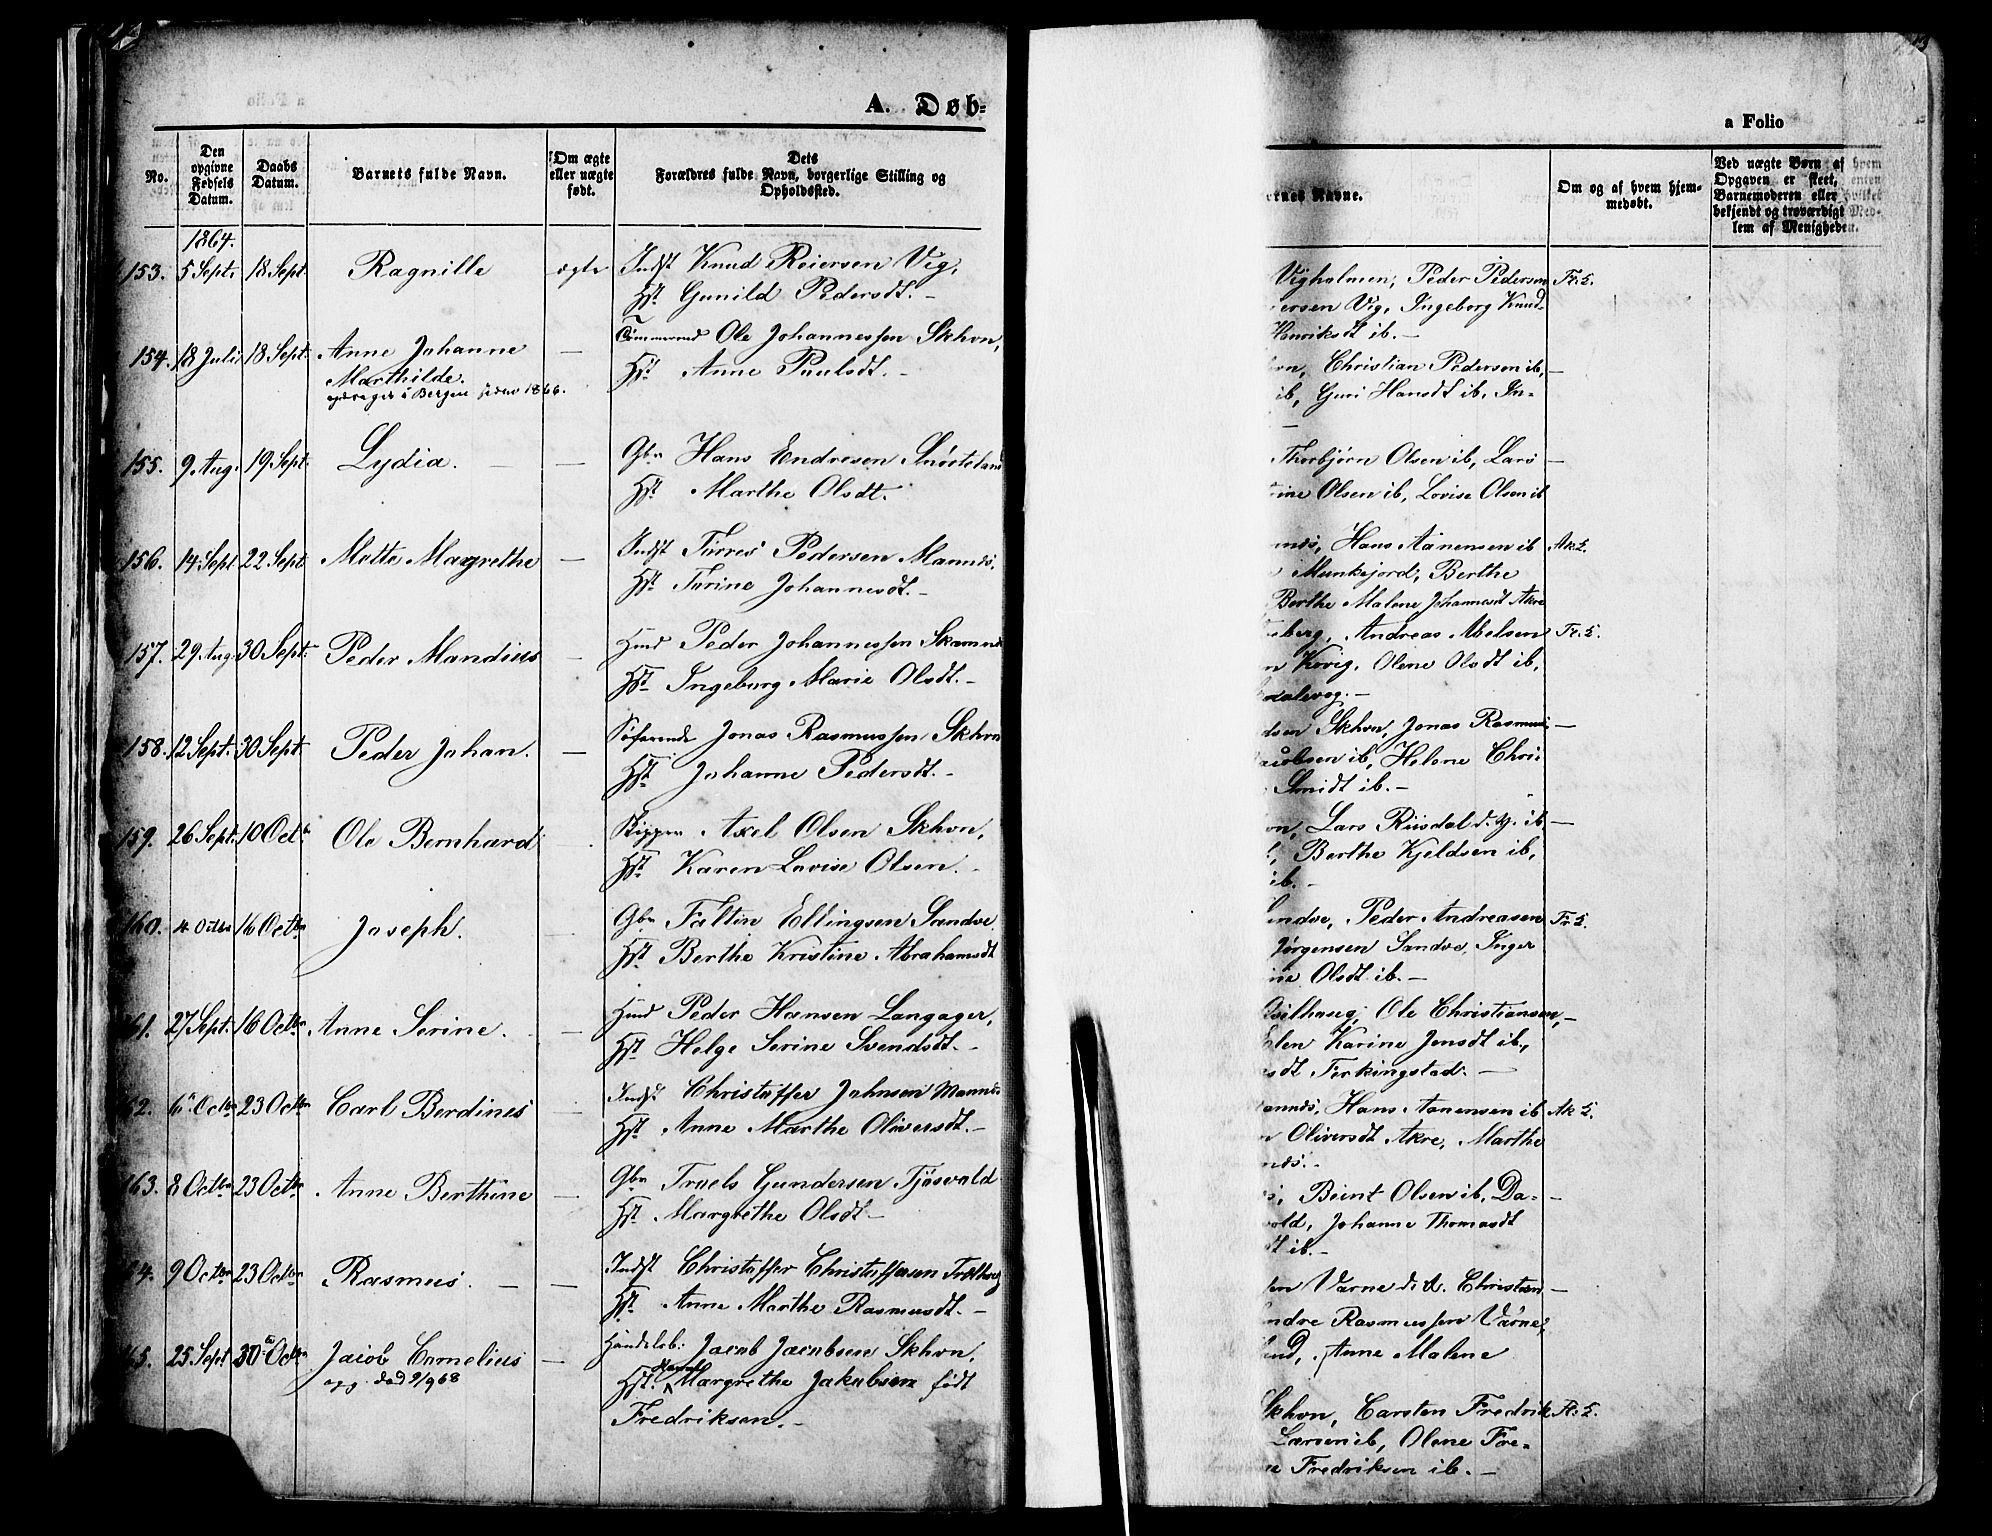 A. Døb-
No.
Den opgivne Fødsels Datum.
Daabs Datum.
Barnets fulde Navn.
Om ægte eller uægte født.
Dets Forældres fulde Navn, borgerlige Stilling og Opholdssted.
1864.
153. 5 Sept. 18 Sept Ragnille ægte Indst Knud Reiersen Vig,
Hst. Gunild Pedersdt. -
154. 18 Juli 18 Sept. Anne Johanne — Tømmermd Ole Johannessen Skhvn,
Marthilde. Hst. Anne Paulsdt. -
i Bergen 1866.
155. 9 Aug. 19 Sept. Lydia. — — Gbr Hans Endresen Snörteland
Hst. Marthe Olsdt.
156. 14 Sept 22 Sept Mette Margrethe — Indst Torres Pedersen Mannes,
Hst. Torine Johannesdt. -
157. 29 Aug. 30 Sept. Peder Mandius — Huusmd Peder Johannessen
Hst. Ingeborg Marie Olsdt. -
158. 12 Sept. 30 Sept. Peder Johan. — Søfarende Jonas Rasmussen Skhvn
Hst. Johanne Pedersdt. -
159. 26 Sept. 10 Octbr Ole Bernhard Skipper Axel Olsen Skhvn,
Hst. Karen Lovise Olsen. -
160. 4 Octbr 16 Octbr Joseph. Gbr Faltin Ellingsen Sandve
Hst. Berthe Kristine Abrahamsdt
61. 27 Sept. 16 Octbr Anne Serine. — Huusmd Peder Hansen Langager,
Hst. Helge Serine Svendsdt. -
62. 6 Octbr 23 Octbr Carl Berdines — Indst Christoffer Johnsen Mannes
Hst. Anne Marthe Oliversdt. -
163. 8 Octbr 23 Octbr Anne Berthine — Gbr Truels Gundersen Tjösvold
Hst. Margrethe Olsdt -
64. 9 Octbr 23 Octbr Rasmus. — — Indst Christoffer Christoffersen
Hst. Anne Marthe Rasmusdt. -
65. 25 Sept 30 Octbr Jacob Cornelius — Handelsb: Jacob Jacobsen Skhvn,
opg. død 2/9 68 Hst. Margrethe Jakobsen født
Fredriksen. -
a Folio
rnes Navne.
Om og af hvem hjemmedøbt.
Ved uægte Børn af
Opgaven er skeet,
Barnemoderen eller
bekjendt og troværdigt Med-
lem af Menigheden.
Vigholmen, Peder Pedersen Fr. L.
ersen Vig, Ingeborg Knud-
Henriksdt ib. -
vn, Christian Pedersen ib, —
ib, Guri Hansdt ib, In-
—
Thorbjørn Olsen ib, Lars —
rine Olsen ib, Lovise Olsen ib
nnes, Hans Aanensen ib Ak L.
Munkejord, Berthe
Berthe Malene Johannesdt Akre
eberg, Andreas Abelsen Fr. L.
n Kevig, Olene Olsdt ib,
dalevog. -
dsen Skhvn, Jonas Rasmus: —
acobsen ib, Helene Chri:
Smidt ib. -
on, Lars Riisdal d. y. ib, —
Berthe Kjeldsen ib,
ib. -
andve, Peder Andreasen Fr. L.
Jørgensen Sandve, Inger
ine Olsdt ib. -
Ole Christiansen, —
Elen Karine Jensdt ib,
sdt Ferkingstad. —
annes, Hans Aanensen ib Ak L.
n Oliversdt Akre, Marthe
nes. -
Beint Olsen ib, Da- -
vold, Johanne Thomasdt
dt ib. -
en Varne d. æ. Christian —
Endre Rasmussen Varne,
lund, Anne Malene
Skhvn, Carsten Fredrik Fr. L.
Larsen ib, Olene Fre-
ne Fredriksen ib. -